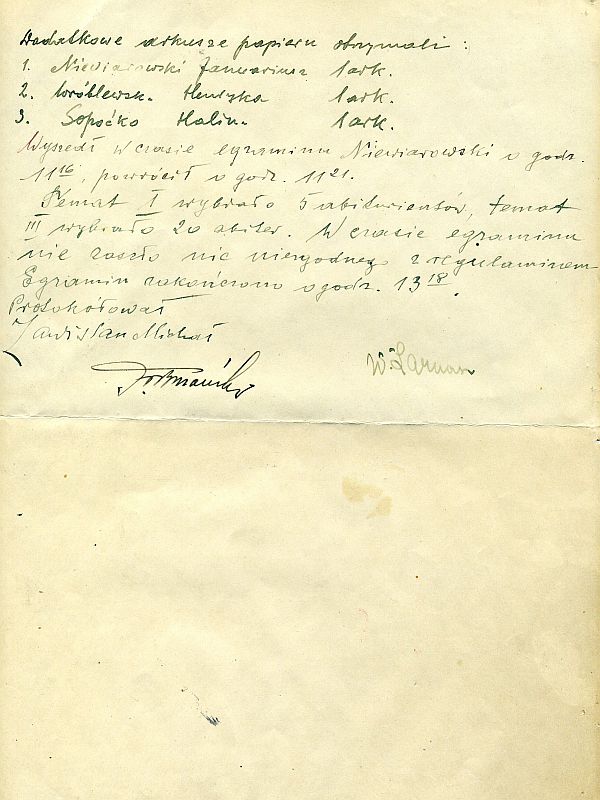 Dodatkowe arkusze papieru otrzymali:
1. Niewiarowski Januariusz 1 ark.
2. Wróblewsk. Henryka 1 ark.
3. Sopoćko Halin. 1 ark.
Wyszedł w czasie egzaminu Niewiarowski o godz.
11 16, powrócił o godz. 11 21.
Temat I wybrało 5 abiturientów, temat
III wybrało 20 abitur. W czasie egzaminu
nie zaszło nic niezgodnego z regulaminem
Egzamin zakończono o godz. 13 18.
Protokołował
Michał
W.